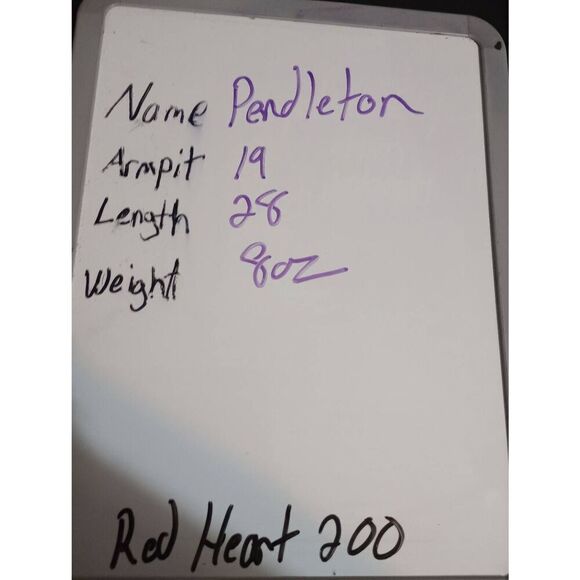 Name Pendleton
Armpit 19
Length 28
Weight 8oz
Red Heart 200